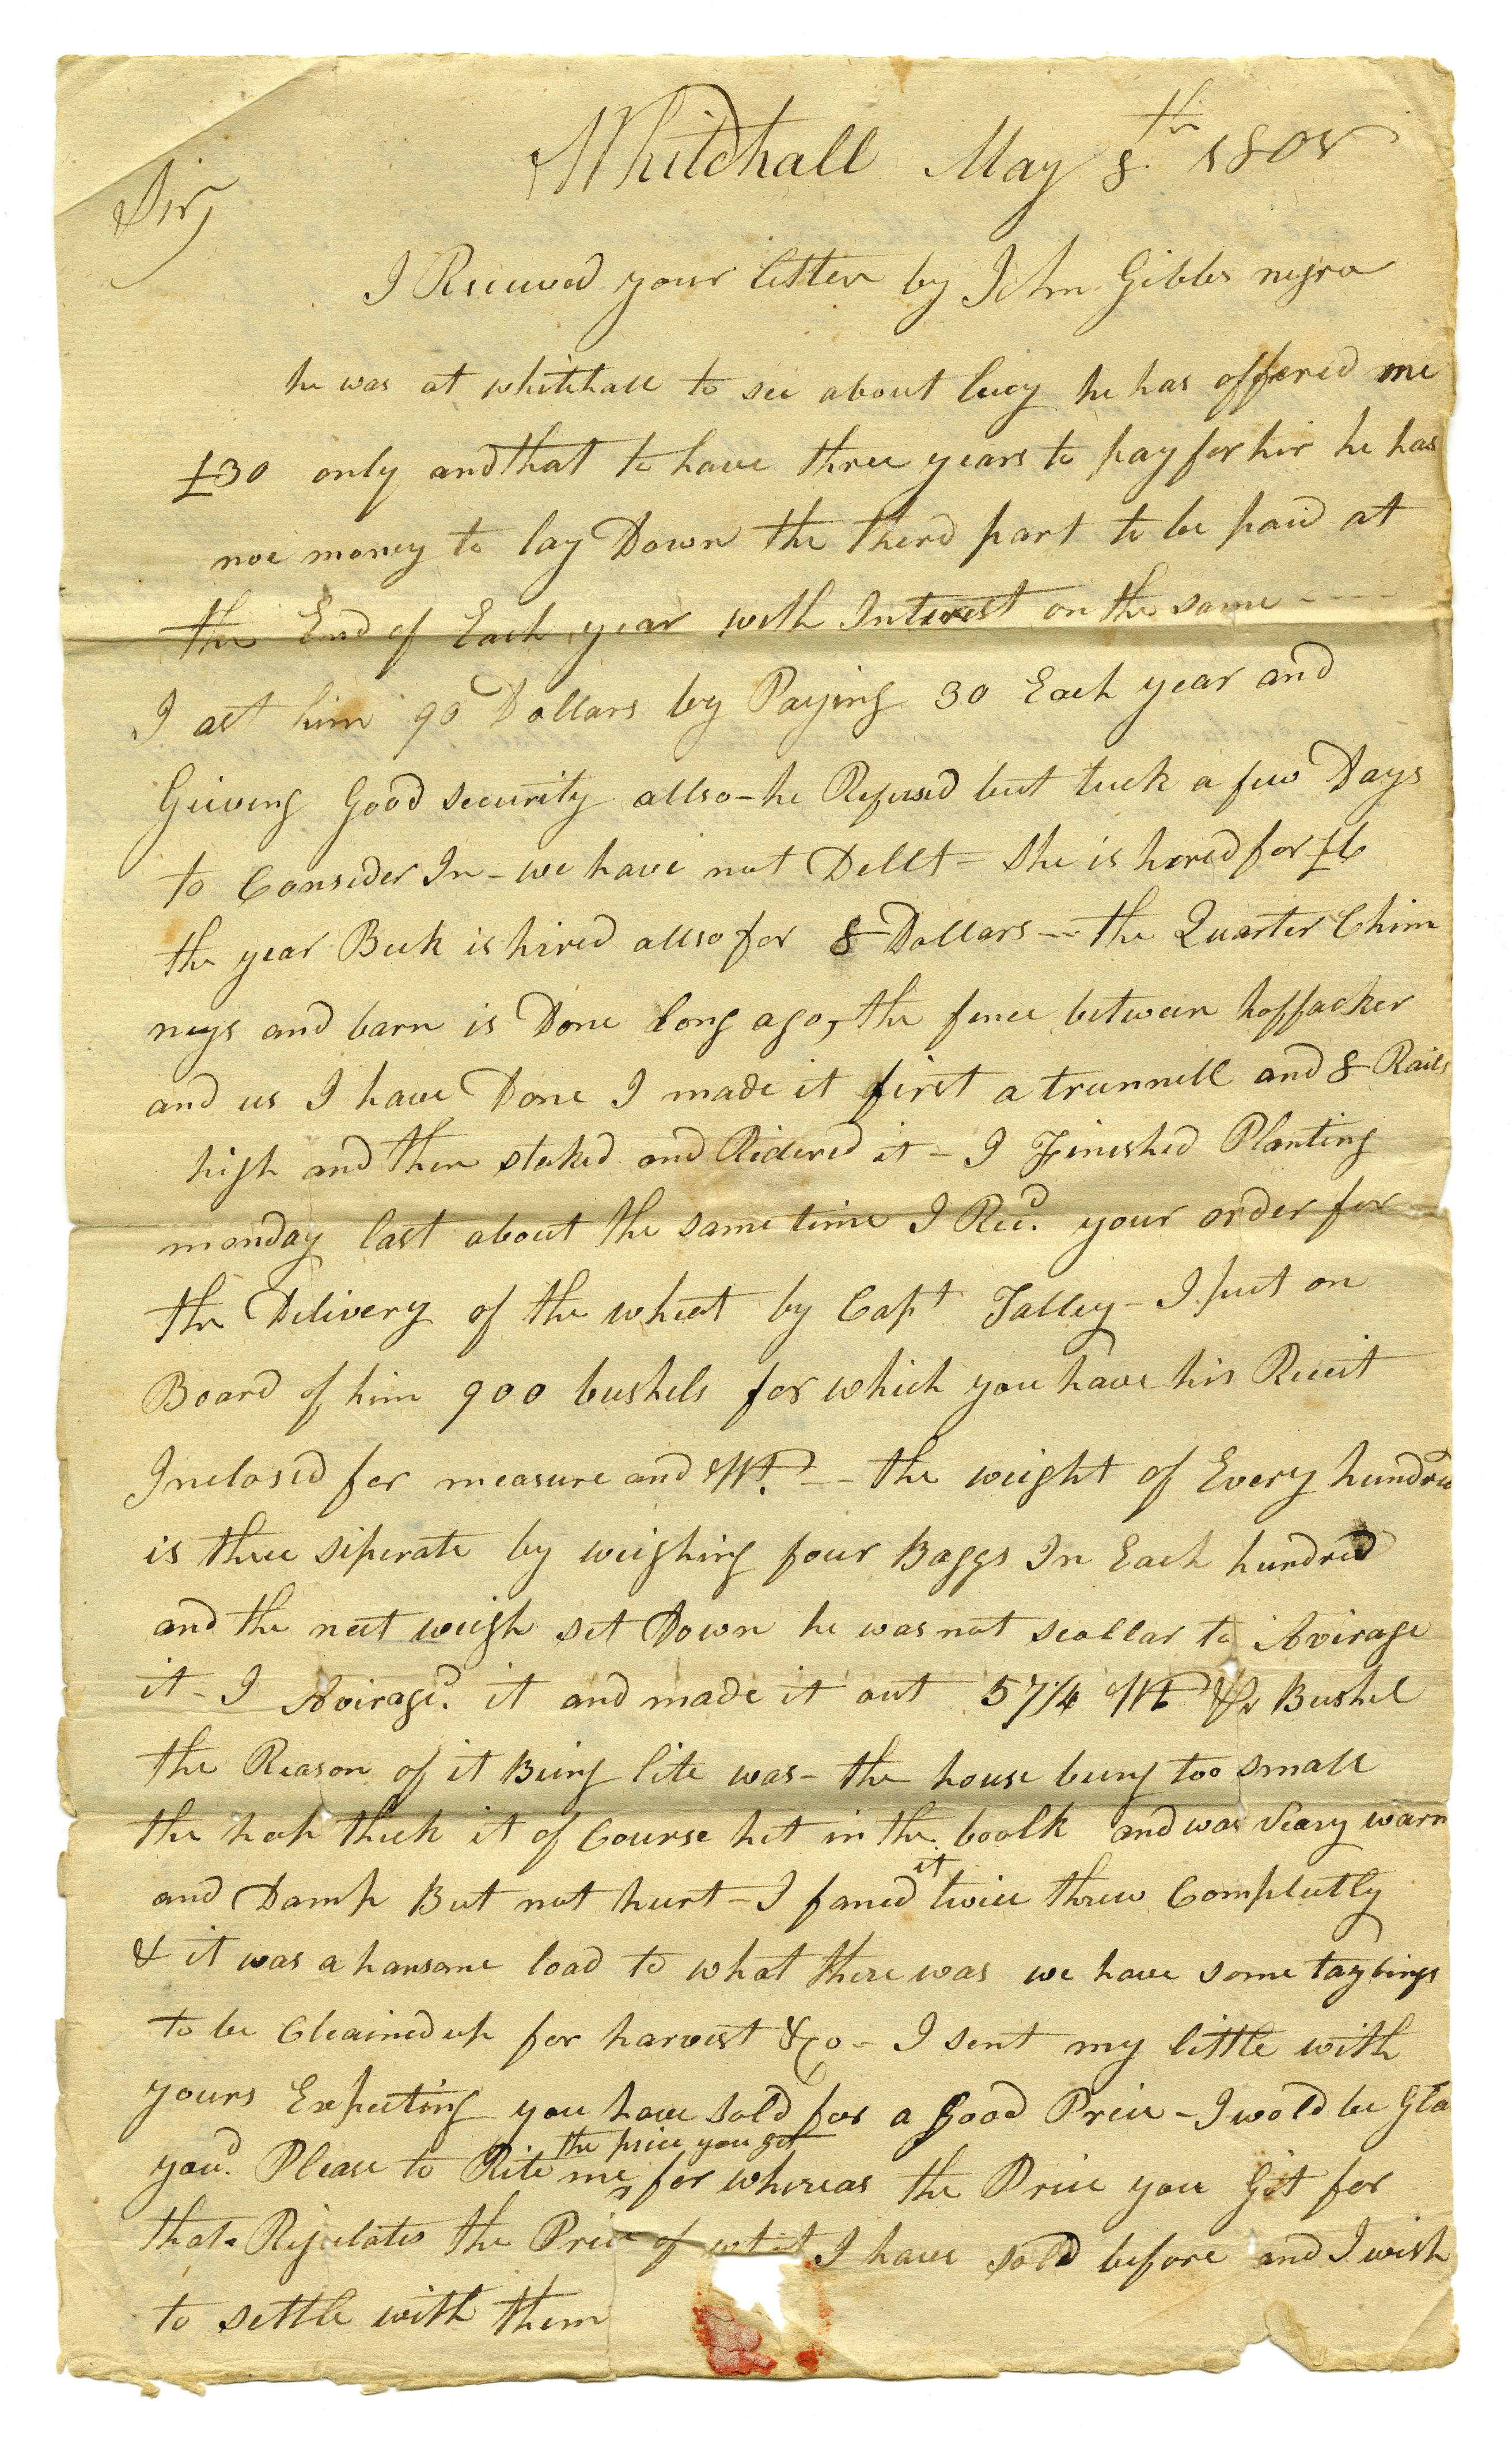 Whitehall May 8th 1805
Sir,
I Recuved your letter by John Gibbs negro
he was at whitehall to see about lucy he has offered me
£30 only and that to have three years to pay for hir he has
noe money to lay Down the therd part to be paid at
the End of Each year with Interest on the same ----
I ast him 90 Dollars by Paying 30 Each year and
Giveing Good security allso - he Refused but tuck a few Days
to Consider In - we have not Dellt - She is hired for £6
the year Beck is hired allso for 8 Dollars -- the Quarter Chim
neys and barn is Done long ago, the fence between hoffacker
and us I have Done I made it first a trunnell and 8 Rails
high and then staked and Ridered it - I Finished Planting
monday last about the same time I Recd. your order for
the Delivery of the wheat by Capt Talley - I put on
Board of him 900 bushels for which you have his Receit
Inclosed for measure and Wt. -- the weight of Every hundred
is there siperate by weighing four Baggs In Each hundred
and the neet weigh set Down he was not scollar to Avirage
it - I Aviraged. it and made it out 57¼ Wt Pr Bushel
the Reason of it Being lite was - the house being too small
the heap thick it of Course het in the boolk and was veary warm
and Damp But not hurt - I faned it twice threw Compleetly
& it was a hansome load to what there was we have some taylings
to be Cleained up for harvest &co - I sent my little with
yours Expecting you have sold for a Good Price - I wold be Gla
youd. Please to Rite me the price you got for whereas the Price you Git for
that Rejulates the Price of what I have sold before and I wish
to settle with them